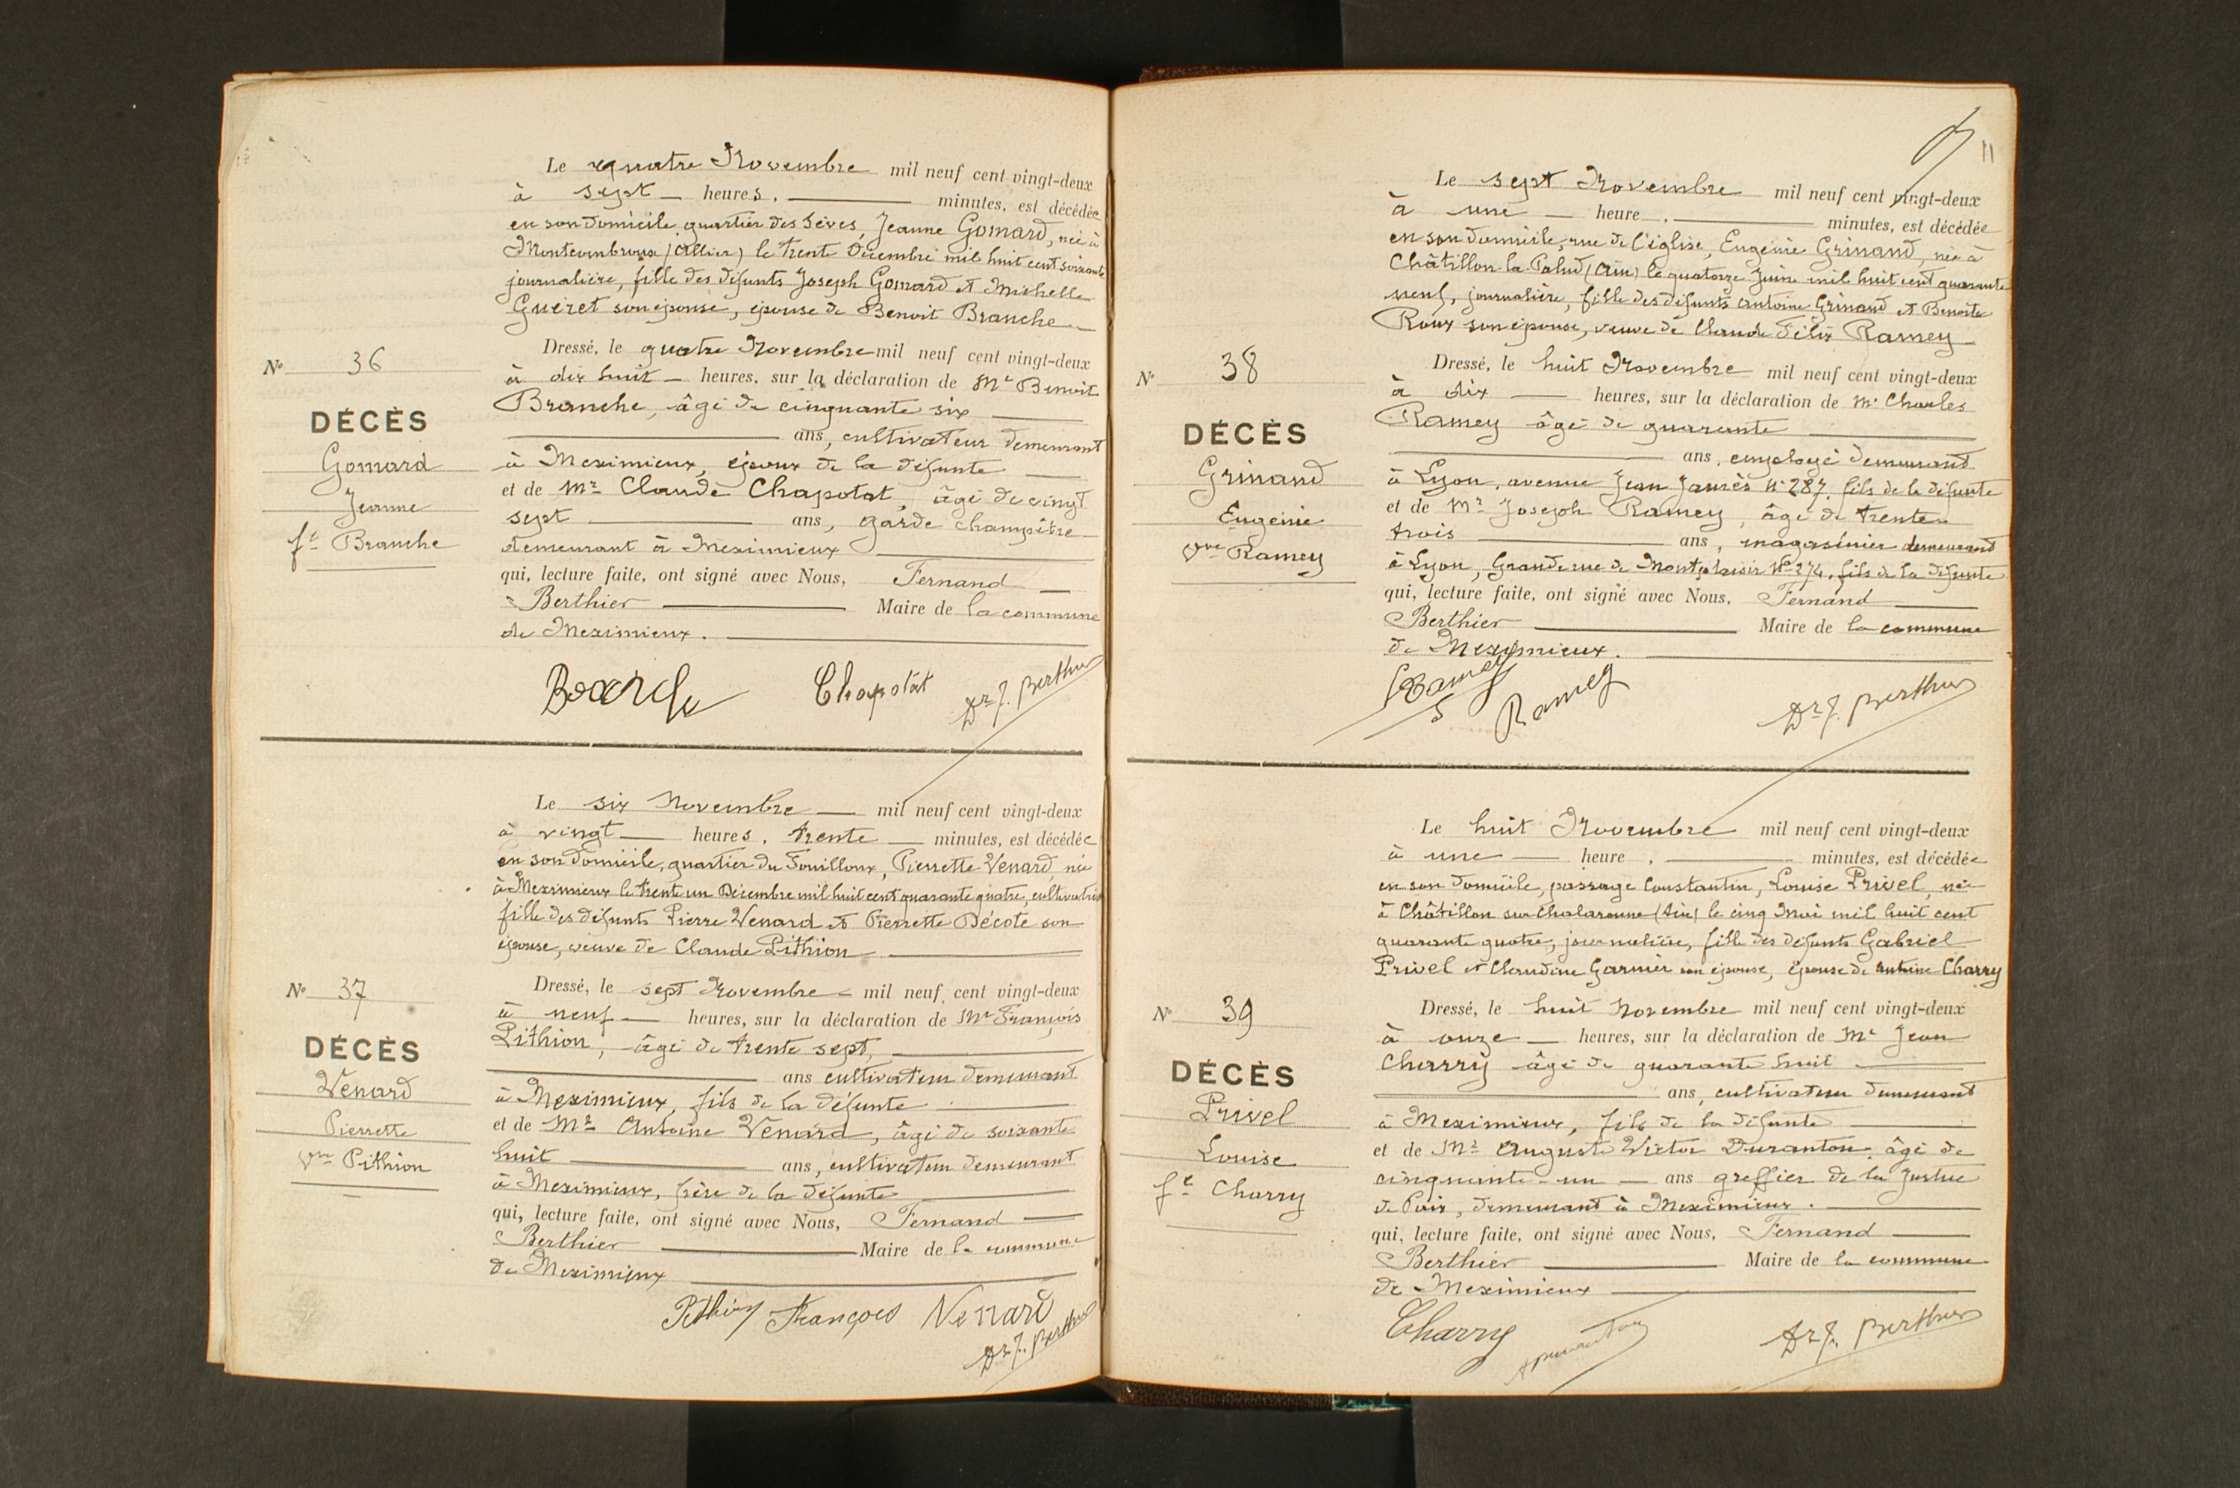 Le quatre Novembre mil neuf cent vingt-deux
à sept heures, minutes, est décédée
en son domicile quartier des Sèves, Jeanne Gomard, née à
Montcombroux (Allier) le trente Décembre mil huit cent soixante
journalière, fille des défunts Joseph Gomard et Michelle
Guéret son épouse, épouse de Benoit Branche
Dressé, le quatre Novembre mil neuf cent vingt-deux
à dix huit heures, sur la déclaration de Mr Benoit
Branche, âgé de cinquante six
ans, cultivateur demeurant
à Meximieux, époux de la défunte
et de Mr Claude Chapotat, âgé de vingt
sept ans, garde champêtre
demeurant à Meximieux
qui, lecture faite, ont signé avec Nous, Fernand
Berthier Maire de la commune
de Meximieux.
No 36
DÉCÈS
Gomard
Jeanne
fe Branche
Branche Chapotat Dr F. Berthier
Le six Novembre mil neuf cent vingt-deux
à vingt heures, trente minutes, est décédée
en son domicile, quartier du Fouilloux, Pierrette Venard, née
à Meximieux le trente un Décembre mil huit cent quarante quatre, cultivatrice
fille des défunts Pierre Venard et Pierrette Décote son
épouse, veuve de Claude Pithion
Dressé, le sept Novembre mil neuf cent vingt-deux
à neuf heures, sur la déclaration de Mr François
Pithion, âgé de trente sept,
ans cultivateur demeurant
à Meximieux, fils de la défunte
et de Mr Antoine Venard, âgé de soixante
huit ans, cultivateur demeurant
à Meximieux, frère de la défunte
qui, lecture faite, ont signé avec Nous, Fernand
Berthier Maire de la commune
de Meximieux
No 37
DÉCÈS
Venard
Pierrette
Vve Pithion
Pithion François Venard
Dr F. Berthier
11
Le sept Novembre mil neuf cent vingt-deux
à une heure, minutes, est décédée
en son domicile, rue de l'église, Eugénie Grinand, née à
Châtillon la Palud (Ain) le quatorze Juin mil huit cent quarante
neuf, journalière, fille des défunts Antoine Grinand et Benoite
Roux son épouse, veuve de Claude Félix Ramey
Dressé, le huit Novembre mil neuf cent vingt-deux
à dix heures, sur la déclaration de Mr Charles
Ramey âgé de quarante
ans, employé demeurant
à Lyon, avenue Jean Jaurès No 287, fils de la défunte
et de Mr Joseph Ramey, âgé de trente
trois ans, magasinier demeurant
à Lyon, Grande rue de Montplaisir No 274, fils de la défunte
qui, lecture faite, ont signé avec Nous, Fernand
Berthier Maire de la commune
de Meximieux.
No 38
DÉCÈS
Grinand
Eugénie
Vve Ramey
Ramey Ramey Dr F. Berthier
Le huit Novembre mil neuf cent vingt-deux
à une heure, minutes, est décédée
en son domicile, passage Constantin, Louise Privel, née
à Châtillon sur Chalaronne (Ain) le cinq Mai mil huit cent
quarante quatre, journalière, fille des défunts Gabriel
Privel et Claudine Garnier son épouse, épouse de Antoine Charry
Dressé, le huit Novembre mil neuf cent vingt-deux
à onze heures, sur la déclaration de Mr Jean
Charry âgé de quarante huit
ans, cultivateur demeurant
à Meximieux, fils de la défunte
et de Mr Auguste Victor Duranton, âgé de
cinquante-un ans greffier de la Justice
de Paix, demeurant à Meximieux.
qui, lecture faite, ont signé avec Nous, Fernand
Berthier Maire de la commune
de Meximieux
No 39
DÉCÈS
Privel
Louise
fe Charry
Charry ADuranton Dr F. Berthier